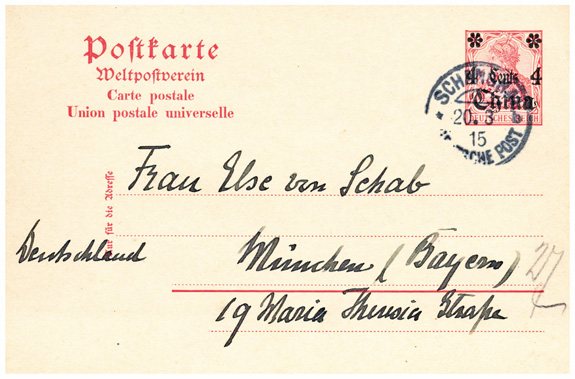 Postkarte
Weltpostverein
Carte postale
Union postale universelle
4 Cents 4
China
DEUTSCHES REICH
20. 3
15
Nur für die Adresse
Frau Else von Schab
Deutschland
München (Bayern)
19 Maria Theresia Straße